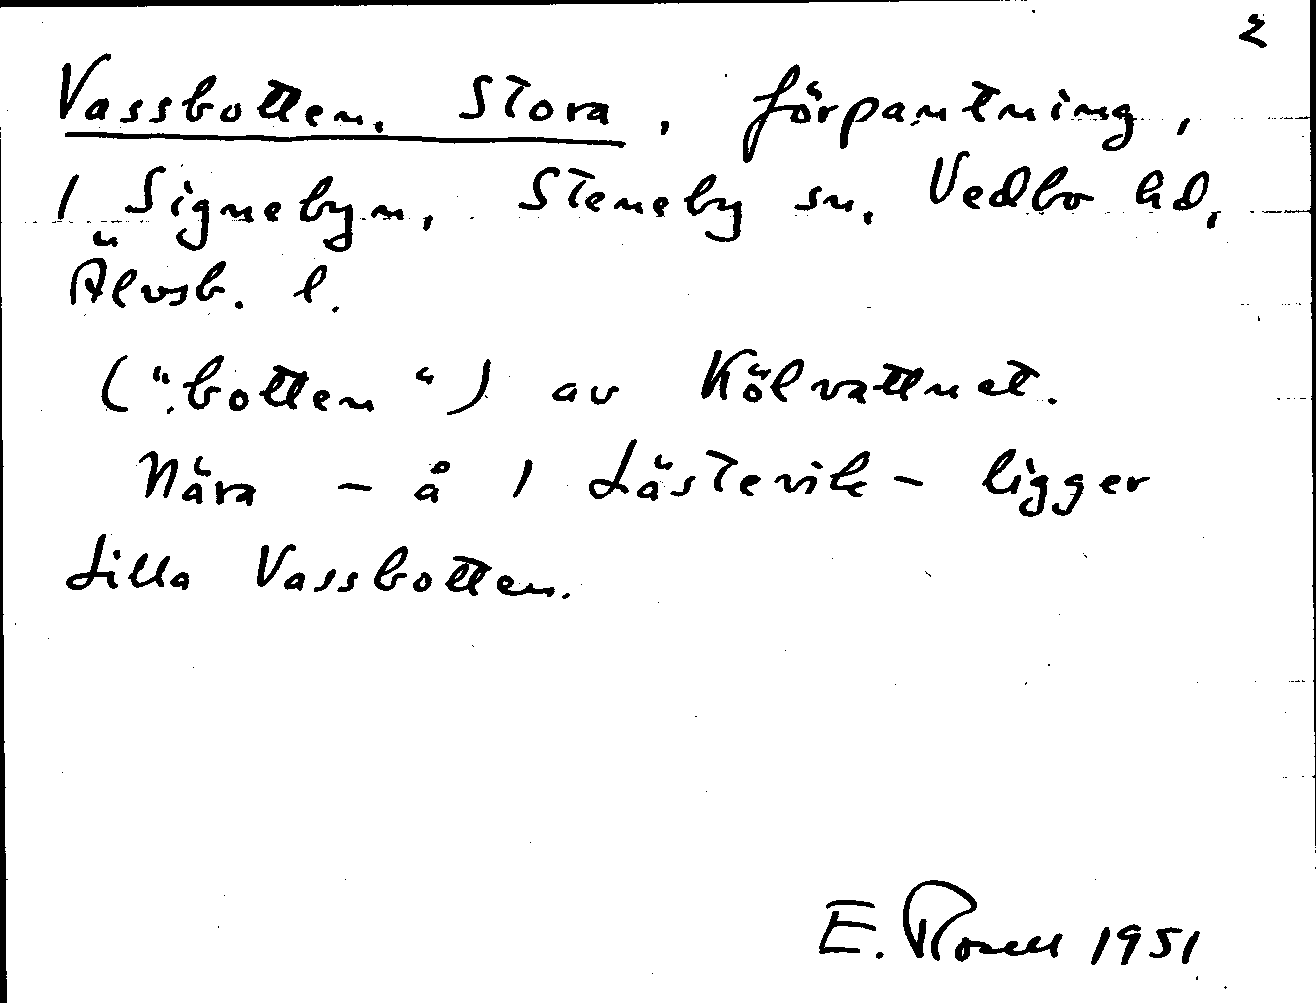 2
Vassbotten, Stora, förpantning,
1 Signebyn, Steneby sn, Vedbo hd,
Älvsb. l.
("botten") av Kölvattnet.
Nära - å 1 Låstevik - ligger
Lilla Vassbotten.
E. Rosell 1951